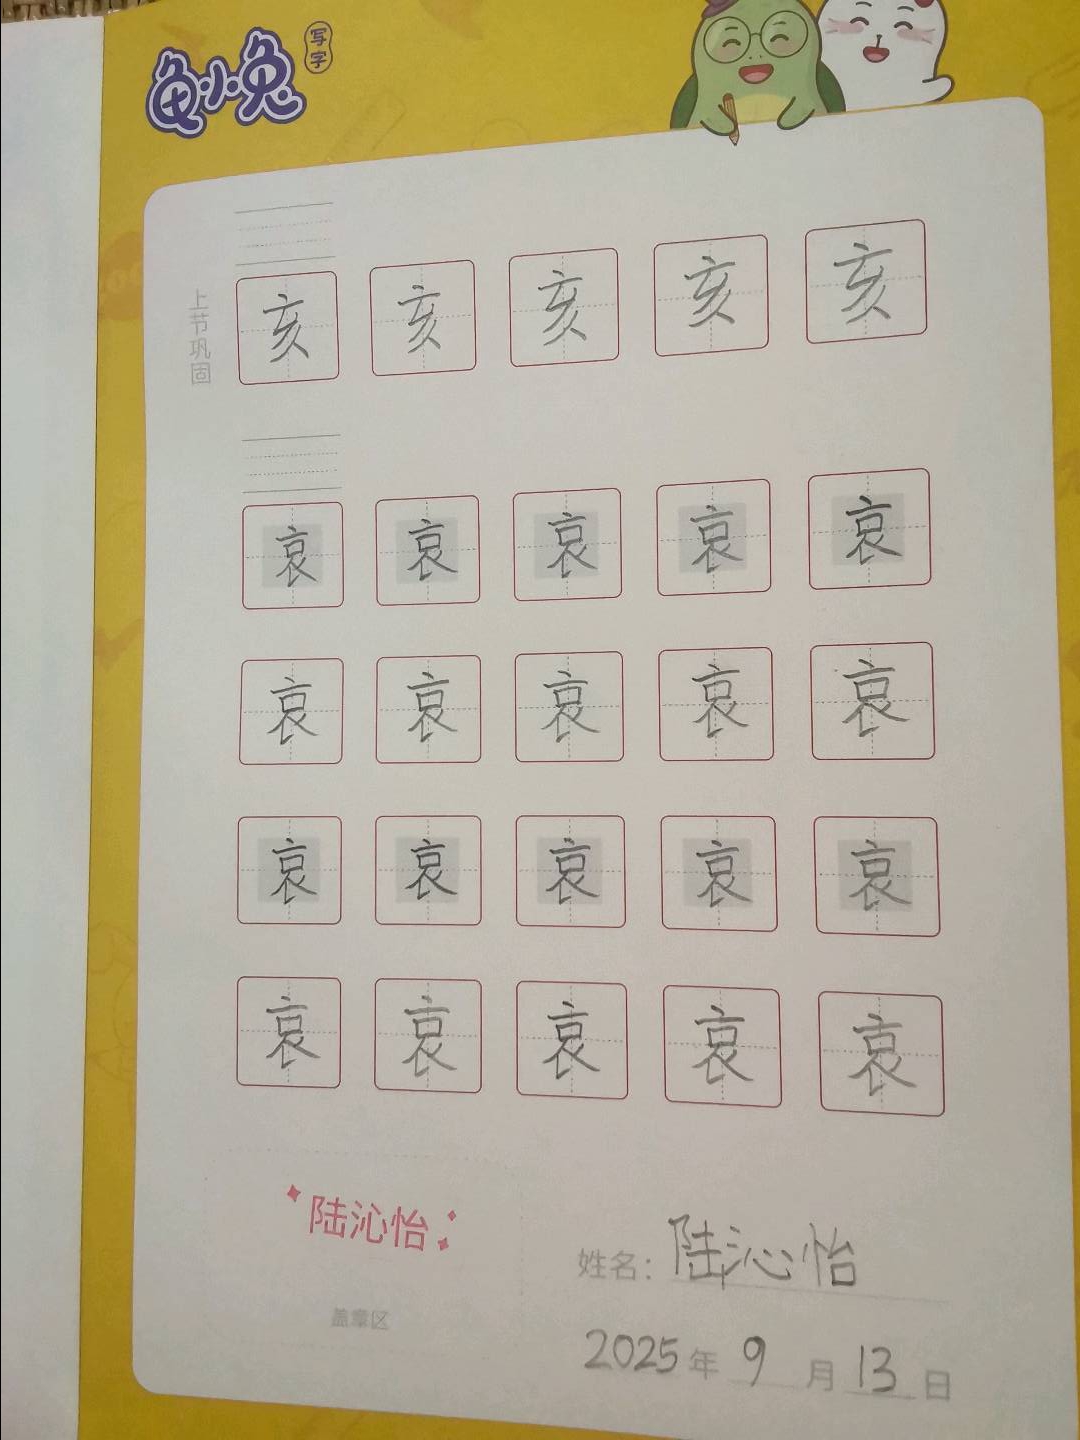 龟小兔
写字
上节巩固
亥 亥 亥 亥 亥
哀 哀 哀 哀 哀
哀 哀 哀 哀 哀
哀 哀 哀 哀 哀
哀 哀 哀 哀 哀
陆沁怡
盖章区
姓名：陆沁怡
2025年9月13日